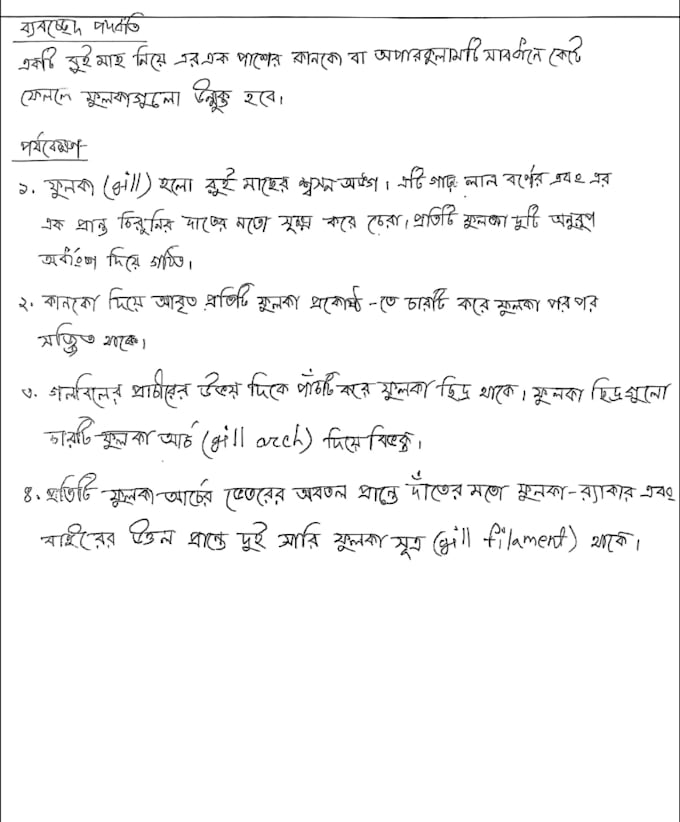 ব্যবচ্ছেদ পদ্ধতি
একটি রুই মাছ নিয়ে এর এক পাশের কানকো বা অপারকুলামটি সাবধানে কেটে
ফেললে ফুলকাগুলো উন্মুক্ত হবে।
পর্যবেক্ষণ
১. ফুলকা (gill) হলো রুই মাছের শ্বসন অঙ্গ। এটি গাঢ় লাল বর্ণের এবং এর
এক প্রান্ত চিরুনির দাতের মতো সূক্ষ্ম করে চেরা। প্রতিটি ফুলকা দুটি অনুরূপ
অর্ধাংশ দিয়ে গঠিত।
২. কানকো দিয়ে আবৃত প্রতিটি ফুলকা প্রকোষ্ঠ -তে চারটি করে ফুলকা পর পর
সজ্জিত থাকে।
৩. গলবিলের প্রাচীরের উভয় দিকে পাঁচটি করে ফুলকা ছিদ্র থাকে। ফুলকা ছিদ্রগুলো
চারটি ফুলকা আর্চ (gill arch) দিয়ে বিভক্ত।
৪. প্রতিটি ফুলকা-আর্চের ভেতরের অবতল প্রান্তে দাঁতের মতো ফুলকা-র‍্যাকার এবং
বাহিরের উত্তল প্রান্তে দুই সারি ফুলকা সূত্র (gill filament) থাকে।